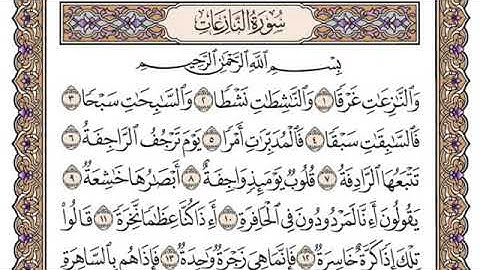 سُورَةُ النَّازِعَاتِ
بِسْمِ اللَّهِ الرَّحْمَٰنِ الرَّحِيمِ
وَالنَّازِعَاتِ غَرْقًا ١ وَالنَّاشِطَاتِ نَشْطًا ٢ وَالسَّابِحَاتِ سَبْحًا ٣
فَالسَّابِقَاتِ سَبْقًا ٤ فَالْمُدَبِّرَاتِ أَمْرًا ٥ يَوْمَ تَرْجُفُ الرَّاجِفَةُ ٦
تَتْبَعُهَا الرَّادِفَةُ ٧ قُلُوبٌ يَوْمَئِذٍ وَاجِفَةٌ ٨ أَبْصَارُهَا خَاشِعَةٌ ٩
يَقُولُونَ أَءِنَّا لَمَرْدُودُونَ فِي الْحَافِرَةِ ١٠ أَءِذَا كُنَّا عِظَامًا نَّخِرَةً ١١ قَالُوا
تِلْكَ إِذًا كَرَّةٌ خَاسِرَةٌ ١٢ فَإِنَّمَا هِيَ زَجْرَةٌ وَاحِدَةٌ ١٣ فَإِذَا هُم بِالسَّاهِرَةِ